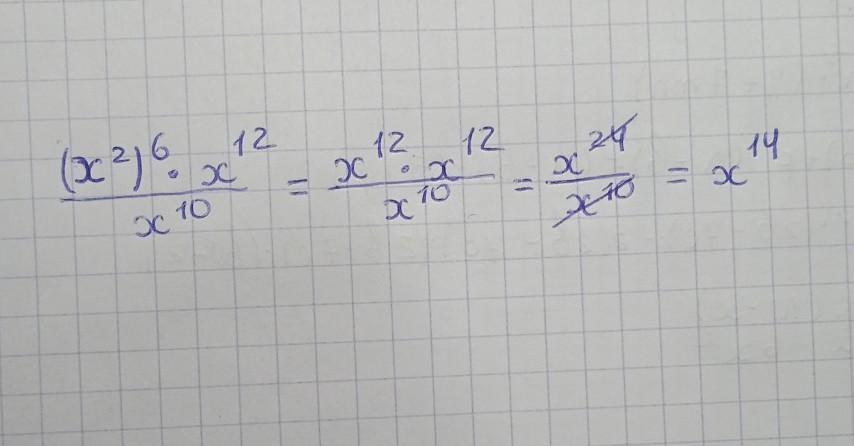 (x²)⁶ · x¹² / x¹⁰ = x¹² · x¹² / x¹⁰ = x²⁴ / x¹⁰ = x¹⁴